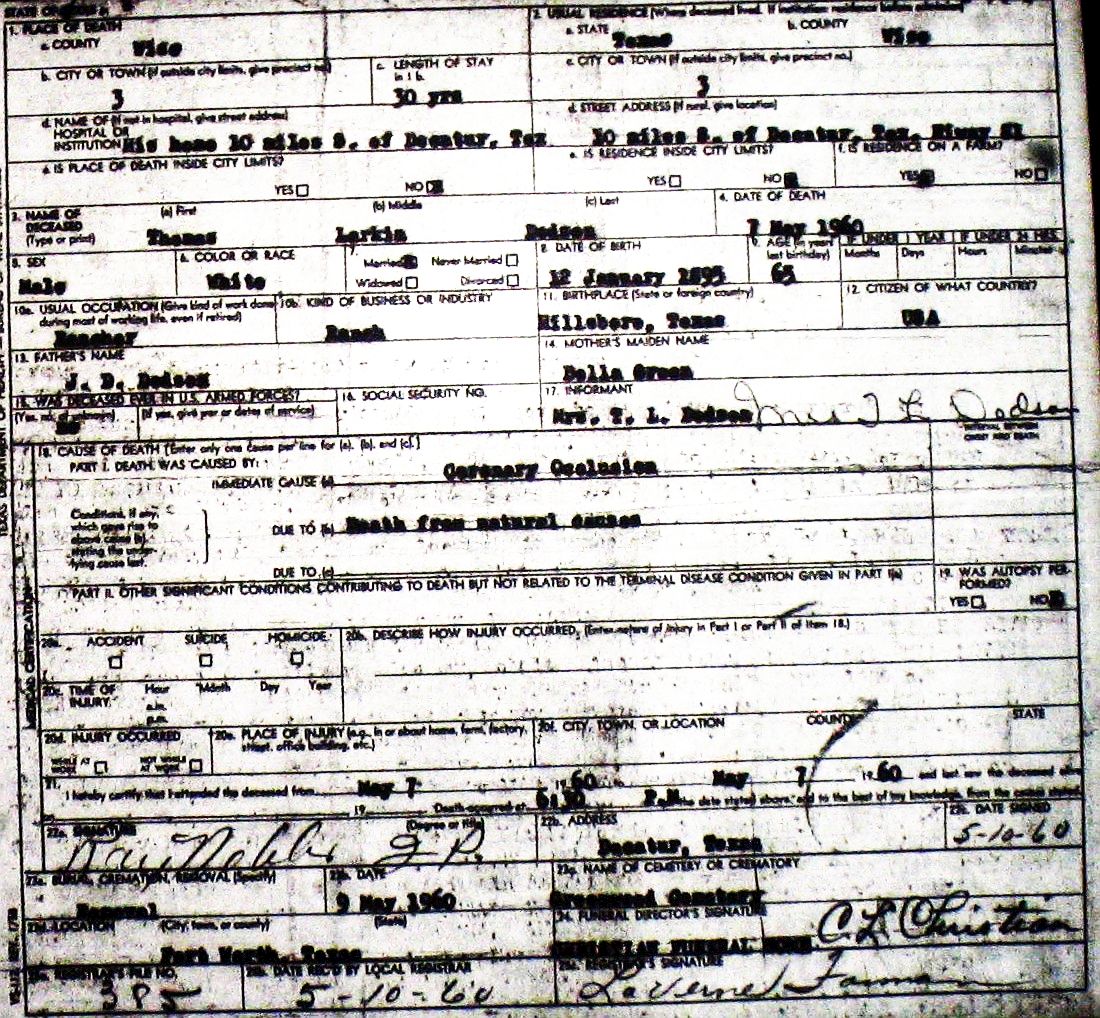 1. PLACE OF DEATH
a. COUNTY Wise
2. USUAL RESIDENCE (Where deceased lived. If institution: residence before admission)
a. STATE Texas
b. COUNTY Wise
b. CITY OR TOWN (If outside city limits, give precinct no.)
3
c. LENGTH OF STAY in 1 b.
30 yrs
c. CITY OR TOWN (If outside city limits, give precinct no.)
3
d. NAME OF (If not in hospital, give street address)
HOSPITAL OR
INSTITUTION His home 10 miles S. of Decatur, Tex
d. STREET ADDRESS (If rural, give location)
10 miles S. of Decatur, Tex. Hiway 81
e. IS PLACE OF DEATH INSIDE CITY LIMITS?
YES NO
e. IS RESIDENCE INSIDE CITY LIMITS?
YES NO
f. IS RESIDENCE ON A FARM?
YES NO
3. NAME OF DECEASED
(Type or print)
(a) First (b) Middle (c) Last
Thomas Larkin Dodson
4. DATE OF DEATH
7 May 1960
5. SEX
Male
6. COLOR OR RACE
White
7. Married Never Married
Widowed Divorced
8. DATE OF BIRTH
12 January 1895
9. AGE (In years last birthday)
65
IF UNDER 1 YEAR
Months Days
IF UNDER 24 HRS.
Hours Minutes
10a. USUAL OCCUPATION (Give kind of work done
during most of working life, even if retired)
Rancher
10b. KIND OF BUSINESS OR INDUSTRY
Ranch
11. BIRTHPLACE (State or foreign country)
Hillsboro, Texas
12. CITIZEN OF WHAT COUNTRY?
USA
13. FATHER'S NAME
J. D. Dodson
14. MOTHER'S MAIDEN NAME
Della Green
15. WAS DECEASED EVER IN U.S. ARMED FORCES?
(Yes, no, or unknown) (If yes, give war or dates of service)
No
16. SOCIAL SECURITY NO.
17. INFORMANT
Mrs. T. L. Dodson Mrs T L Dodson
18. CAUSE OF DEATH [Enter only one cause per line for (a), (b), and (c).]
INTERVAL BETWEEN ONSET AND DEATH
PART I. DEATH WAS CAUSED BY:
IMMEDIATE CAUSE (a) Coronary Occlusion
Conditions, if any,
which gave rise to
above cause (a),
stating the under-
lying cause last.
DUE TO (b) Death from natural causes
DUE TO (c)
PART II. OTHER SIGNIFICANT CONDITIONS CONTRIBUTING TO DEATH BUT NOT RELATED TO THE TERMINAL DISEASE CONDITION GIVEN IN PART I(a)
19. WAS AUTOPSY PER-
FORMED?
YES NO
20a. ACCIDENT SUICIDE HOMICIDE
20b. DESCRIBE HOW INJURY OCCURRED. (Enter nature of injury in Part I or Part II of Item 18.)
20c. TIME OF INJURY
Hour Month Day Year
a.m.
p.m.
20d. INJURY OCCURRED
WHILE AT WORK NOT WHILE AT WORK
20e. PLACE OF INJURY (e.g., in or about home, farm, factory,
street, office building, etc.)
20f. CITY, TOWN, OR LOCATION COUNTY STATE
21. I hereby certify that I attended the deceased from May 7 1960 May 7 1960 and last saw the deceased alive
19 Death occurred at 6:30 P.M. the date stated above, and to the best of my knowledge, from the causes stated.
22a. SIGNATURE (Degree or title)
J.P.
22b. ADDRESS
Decatur, Texas
22c. DATE SIGNED
5-10-60
23a. BURIAL, CREMATION, REMOVAL (Specify)
Removal
23b. DATE
9 May 1960
23c. NAME OF CEMETERY OR CREMATORY
Greenwood Cemetery
23d. LOCATION (City, town, or county) (State)
Fort Worth, Texas
24. FUNERAL DIRECTOR'S SIGNATURE
FUNERAL HOME C L Christian
25a. REGISTRAR'S FILE NO.
385
25b. DATE REC'D BY LOCAL REGISTRAR
5-10-60
25c. REGISTRAR'S SIGNATURE
LaVerne
MEDICAL CERTIFICATION